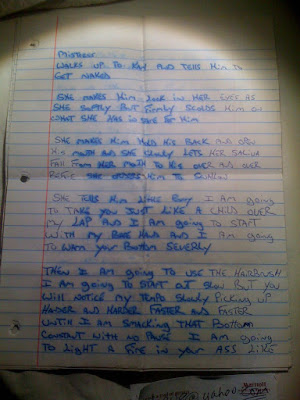 MISTRESS
WALKS UP TO AND TELLS HIM TO
GET NAKED
SHE MAKES HIM LOOK IN HER EYES AS
SHE SOFTLY BUT FIRMLY SCOLDS HIM ON
WHAT SHE HAS IN STORE FOR HIM
SHE MAKES HIM HOLD HIS BACK AND OPEN
HIS MOUTH AND SHE SLOWLY LETS HER SALIVA
FALL FROM HER MOUTH TO HIS OVER AND OVER
BEFORE SHE ORDERS HIM TO SWALLOW
SHE TELLS HIM BOY I AM GOING
TO TAKE YOU JUST LIKE A CHILD OVER
MY LAP AND I AM GOING TO START
WITH MY BARE HAND AND I AM GOING
TO WARM YOUR BOTTOM SEVERLY
THEN I AM GOING TO USE THE HAIRBRUSH
I AM GOING TO START OUT SLOW BUT YOU
WILL NOTICE MY TEMPO SLOWLY PICKING UP
HARDER AND HARDER FASTER AND FASTER
UNTIL I AM SMACKING THAT BOTTOM
CONSTANT WITH NO PAUSE I AM GOING
TO LIGHT A FIRE IN YOUR ASS LIKE
yahoo